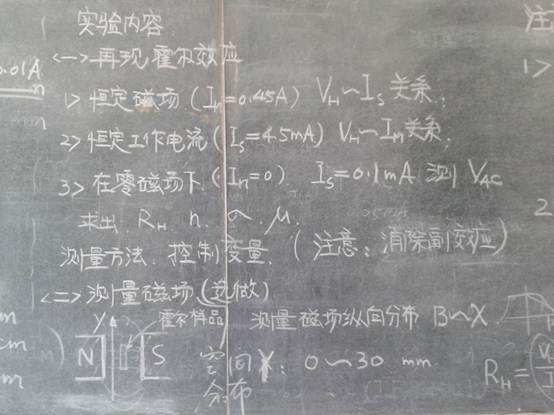 实验内容
<一>再现霍尔效应
1> 恒定磁场 (Im=0.45A) VH~Is 关系;
2> 恒定工作电流 (Is=4.5mA) VH~Im 关系;
3> 在零磁场下 (Im=0) Is=0.1mA 测 VAC
求出 RH. n. σ. μ.
测量方法. 控制变量. (注意: 消除副效应)
<二> 测量磁场 (选做)
Y 霍尔样品 测量磁场纵向分布 B~X
N S 空间 : 0~30 mm.
分布
RH=
0.01A
注
1>
2